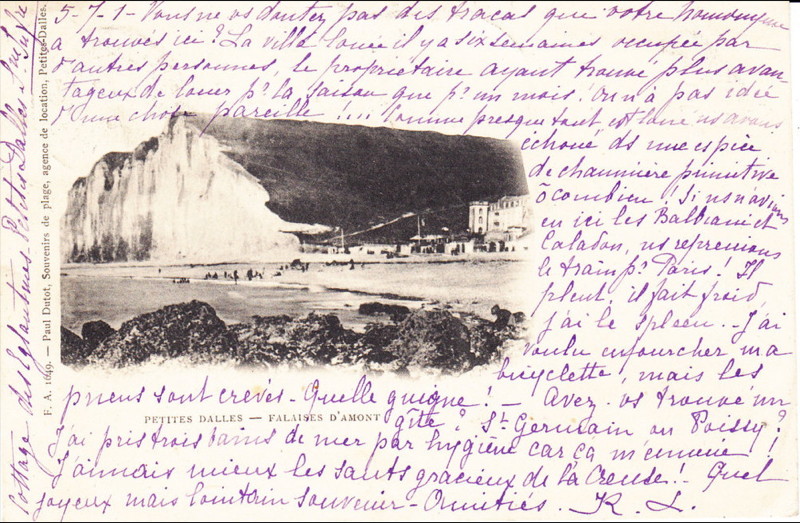 5-7-1- Vous ne vs doutez pas des tracas que votre homonyme
a trouvés ici? La villa louée il y a six semaines occupée par
d'autres personnes, le propriétaire ayant trouvé plus avan
tageux de louer pr la saison que pr un mois! On n'a pas idée
d'une chose pareille .... Comme presque tout est loué ns avons
échoué ds une espèce
de chaumière primitive
ô combien! Si ns n'avions
eu ici les Balbiani et
Caladon, ns reprenions
le train pr Paris! Il
pleut, il fait froid,
j'ai le spleen. - J'ai
voulu enfourcher ma
bicyclette, mais les
pneus sont crevés - Quelle guigne! - Avez-vs trouvé un
PETITES DALLES — FALAISES D'AMONT
gîte? St Germain ou Poissy?
J'ai pris trois bains de mer par hygiène car ça m'ennuie!
J'aimais mieux les sauts gracieux de la Creuse! - Quel
joyeux mais lointain souvenir - Amitiés. K. L.
F. A. 1649. — Paul Dutot, Souvenirs de plage, agence de location, Petites-Dalles.
Cottage des Eglantines - Petites Dalles - Seine Infre